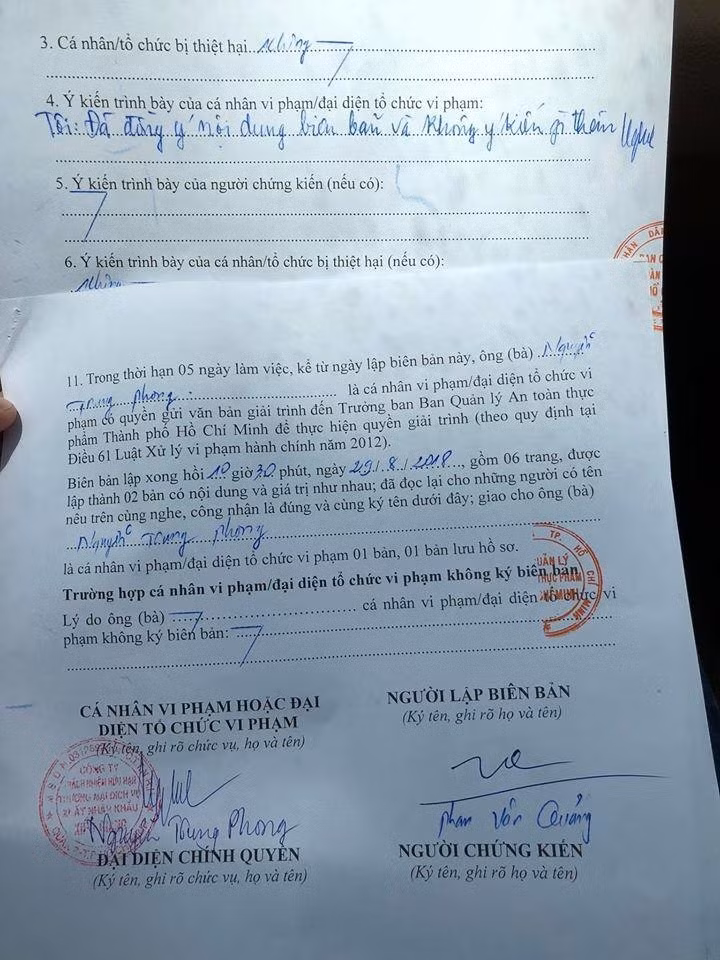 3. Cá nhân/tổ chức bị thiệt hại Không
4. Ý kiến trình bày của cá nhân vi phạm/đại diện tổ chức vi phạm:
Tôi: Đã đồng ý nội dung biên bản và không ý kiến gì thêm
5. Ý kiến trình bày của người chứng kiến (nếu có):
6. Ý kiến trình bày của cá nhân/tổ chức bị thiệt hại (nếu có):
Không
11. Trong thời hạn 05 ngày làm việc, kể từ ngày lập biên bản này, ông (bà) Nguyễn
Trung Phong là cá nhân vi phạm/đại diện tổ chức vi
phạm có quyền gửi văn bản giải trình đến Trưởng ban Ban Quản lý An toàn thực
phẩm Thành phố Hồ Chí Minh để thực hiện quyền giải trình (theo quy định tại
Điều 61 Luật Xử lý vi phạm hành chính năm 2012).
Biên bản lập xong hồi 10 giờ 30 phút, ngày 29/8/2018, gồm 06 trang, được
lập thành 02 bản có nội dung và giá trị như nhau; đã đọc lại cho những người có tên
nêu trên cùng nghe, công nhận là đúng và cùng ký tên dưới đây; giao cho ông (bà)
Nguyễn Trung Phong
là cá nhân vi phạm/đại diện tổ chức vi phạm 01 bản, 01 bản lưu hồ sơ.
Trường hợp cá nhân vi phạm/đại diện tổ chức vi phạm không ký biên bản
Lý do ông (bà) cá nhân vi phạm/đại diện tổ chức vi
phạm không ký biên bản:
TP. HỒ CHÍ MINH
QUẢN LÝ
THỰC PHẨM
CÁ NHÂN VI PHẠM HOẶC ĐẠI
DIỆN TỔ CHỨC VI PHẠM
(Ký tên, ghi rõ chức vụ, họ và tên)
NGƯỜI LẬP BIÊN BẢN
(Ký tên, ghi rõ họ và tên)
CÔNG TY
TRÁCH NHIỆM HỮU HẠN
THƯƠNG MẠI DỊCH VỤ
XUẤT NHẬP KHẨU
Nguyễn Trung Phong
Phan Văn Quảng
ĐẠI DIỆN CHÍNH QUYỀN
(Ký tên, ghi rõ chức vụ, họ và tên)
NGƯỜI CHỨNG KIẾN
(Ký tên, ghi rõ họ và tên)